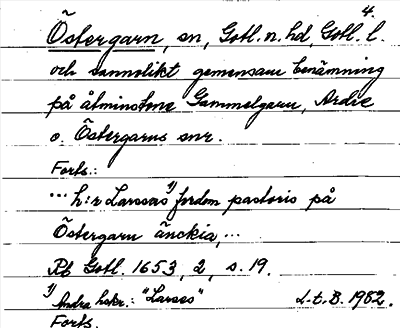 4.
Östergarn, sn, Gotl. n. hd, Gotl. l.
och sannolikt gemensam benämning
på åtminstone Gammelgarn, Ardre
o. Östergarns snr.
Forts.:
... h:r Larsses 1) fordom pastoris på
Östergarn änckia, ...
Rb Gotl. 1653, 2, s. 19.
1) Andra hskr.: "Larses" L-t. B. 1982.
Forts.